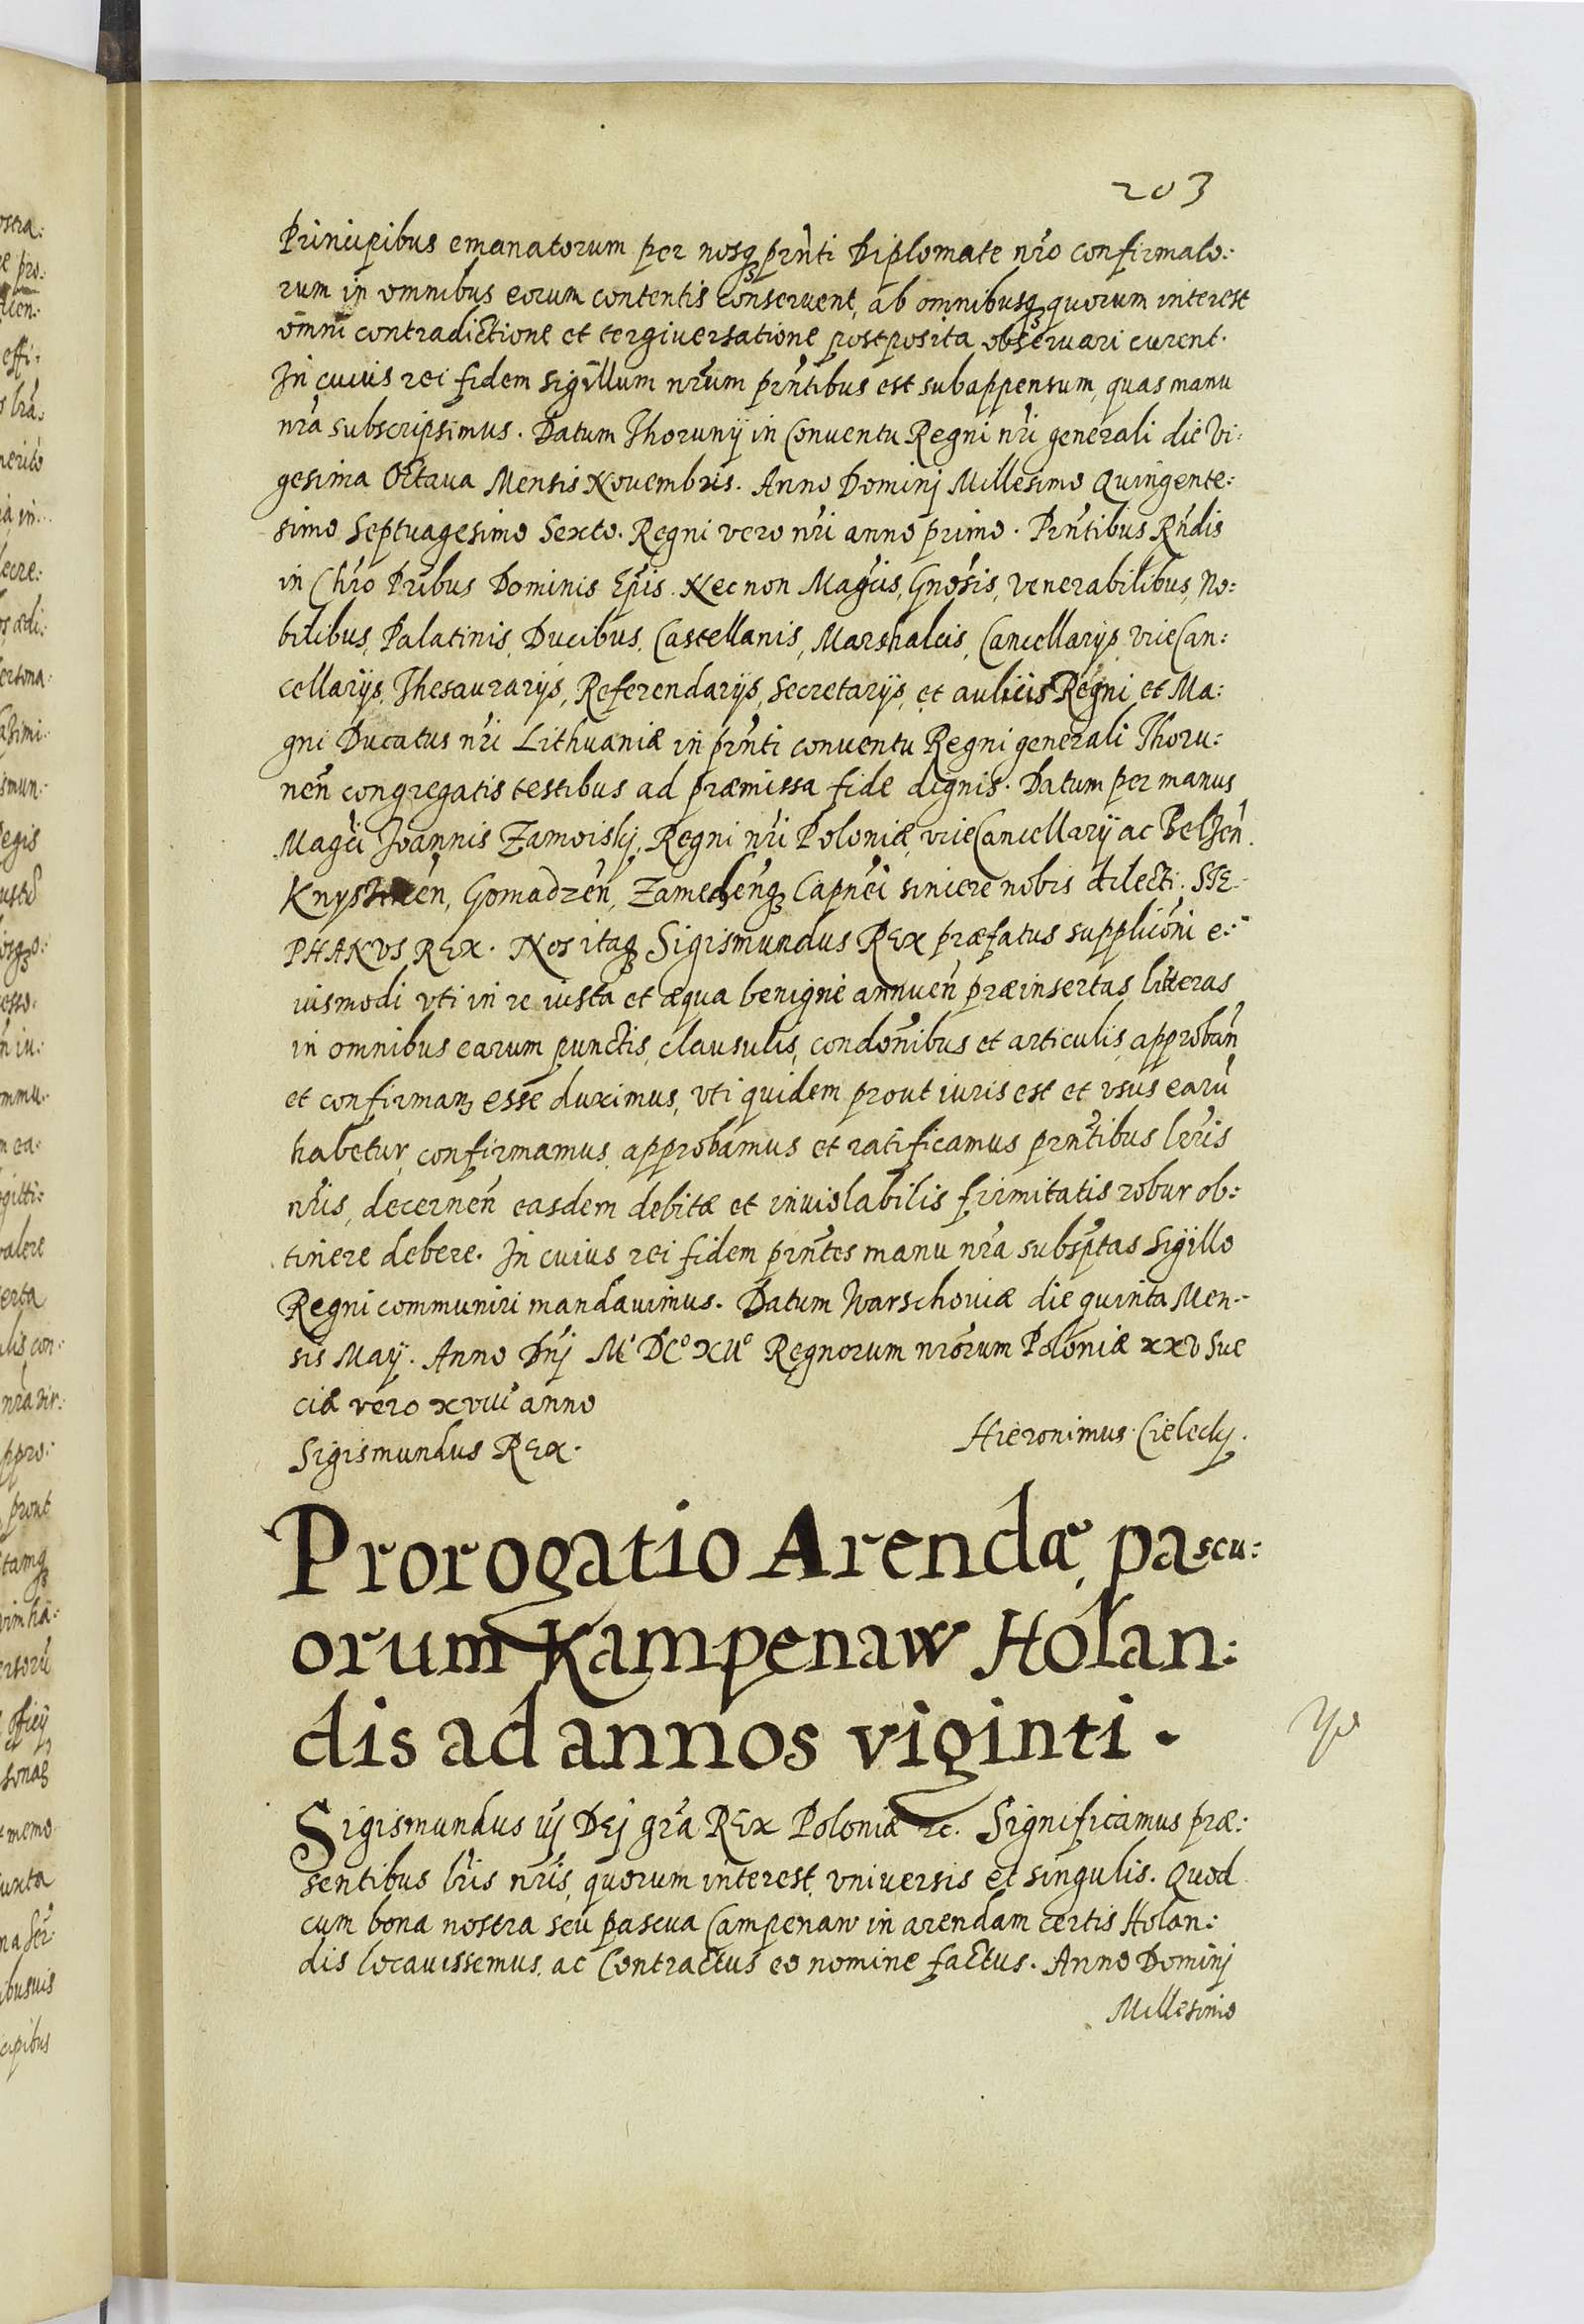 203
Principibus emanatorum per nosq prn̄ti Diplomate nr̄o confirmato:
rum in omnibus eorum contentis conseruent, ab omnibusq quorum interest
omni contradictione et tergiuersatione postposita obseruari curent.
In cuius rei fidem sigillum nr̄um prn̄tibus est subappensum, quas manu
nr̄a subscripsimus. Datum Thorunij in Conuentu Regni nr̄i generali die Vi:
gesima Octaua Mensis Nouembris. Anno Dominj Millesimo Quingente:
simo Septuagesimo Sexto. Regni vero nr̄i anno primo. Prn̄tibus Rn̄dis
in Chr̄o Pr̄ibus Dominis Ep̄is. Necnon Maḡcis, Gnōsis, Venerabilibus, No:
bilibus, Palatinis, Ducibus, Castellanis, Marshalcis, Cancellarijs viceCan:
cellarijs, Thesaurarijs, Referendarijs, Secretarijs, et aulicis Regni et Ma:
gni Ducatus nr̄i Lithuaniæ in prn̄ti conuentu Regni generali Thoru:
nen̄ congregatis testibus ad præmissa fide dignis. Datum per manus
Maḡci Joannis Zamoiskj, Regni nr̄i Poloniæ, viceCancellarij ac Belzen̄.
Gomadzen̄, Zamechen̄q Capn̄ei sincere nobis dilecti. STE:
PHANVS REX. Nos itaq Sigismundus REX præfatus supplicōni e:
iusmodi vti in re iusta et æqua benignè annuen̄ præinsertas literas
in omnibus earum punctis, clausulis, condōnibus et articulis, approban̄
et confirman̄ esse duximus, vti quidem prout iuris est et vsus earū
habetur, confirmamus, approbamus et ratificamus prn̄tibus lr̄is
nr̄is, decernen̄ easdem debitæ et inuiolabilis firmitatis robur ob:
tinere debere. In cuius rei fidem prn̄tes manu nr̄a subsp̄tas Sigillo
Regni communiri mandauimus. Datum Warschouiæ die quinta Men:
sis Maij. Anno Dn̄j Mº DCº XIIº Regnorum nr̄orum Poloniæ xxv Sue
ciæ vero xviii anno
Sigismundus REX.
Hieronimus Cieleckj.
Prorogatio Arendæ pascu:
orum Kampenaw Holan:
dis ad annos viginti.
Sigismundus iij DEj gr̄a REX Poloniæ &c. Significamus præ:
sentibus lr̄is nr̄is, quorum interest, vniuersis et singulis. Quod
cum bona nostra seu pascua Campenaw in arendam certis Holan:
dis locauissemus, ac Contractus eo nomine factus. Anno Dominj
Millesimo